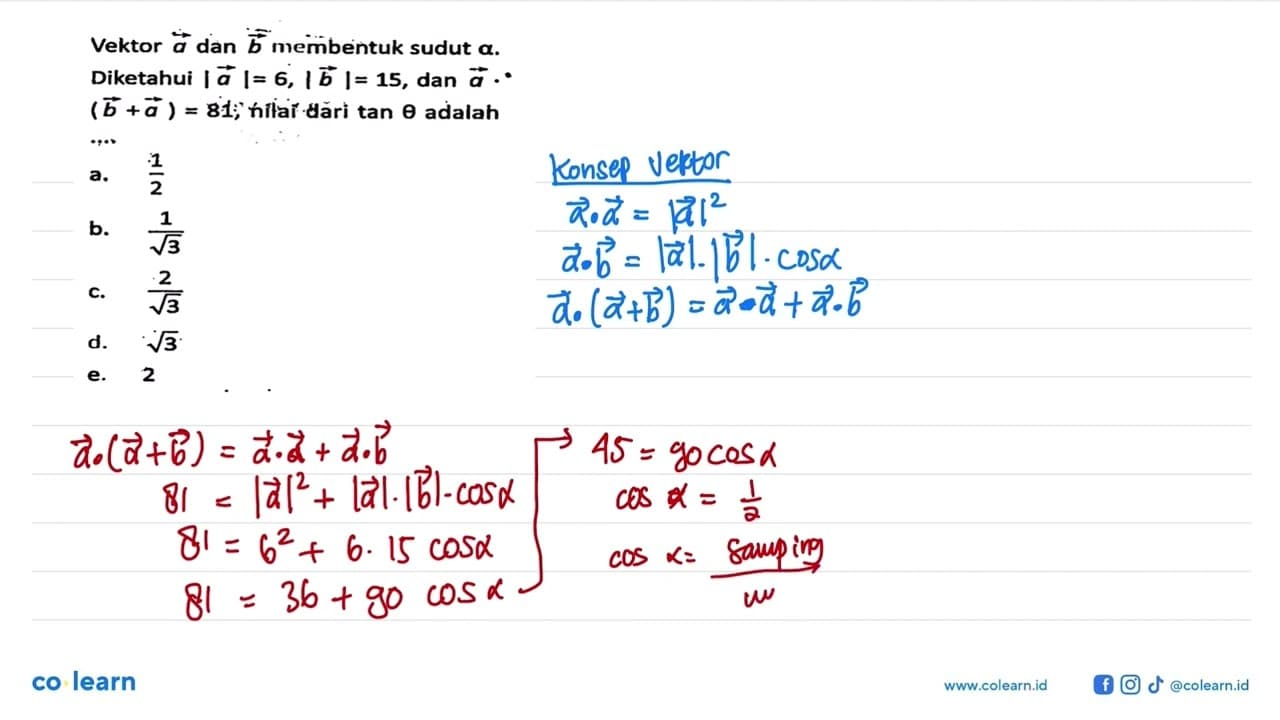 Vektor a⃗ dan b⃗ membentuk sudut α.
Diketahui |a⃗|= 6, |b⃗|= 15, dan a⃗ ·
(b⃗ + a⃗) = 81, nilai dari tan θ adalah
....
a. 1/2
b. 1/√3
c. 2/√3
d. √3
e. 2
Konsep Vektor
a⃗·a⃗ = |a⃗|²
a⃗·b⃗ = |a⃗|·|b⃗|·cosα
a⃗·(a⃗+b⃗) = a⃗·a⃗ + a⃗·b⃗
a⃗·(a⃗+b⃗) = a⃗·a⃗ + a⃗·b⃗
81 = |a⃗|² + |a⃗|·|b⃗|·cosα
81 = 6² + 6·15 cosα
81 = 36 + 90 cosα
45 = 90 cosα
cos α = 1/2
cos α = samping/
co learn
www.colearn.id
@colearn.id